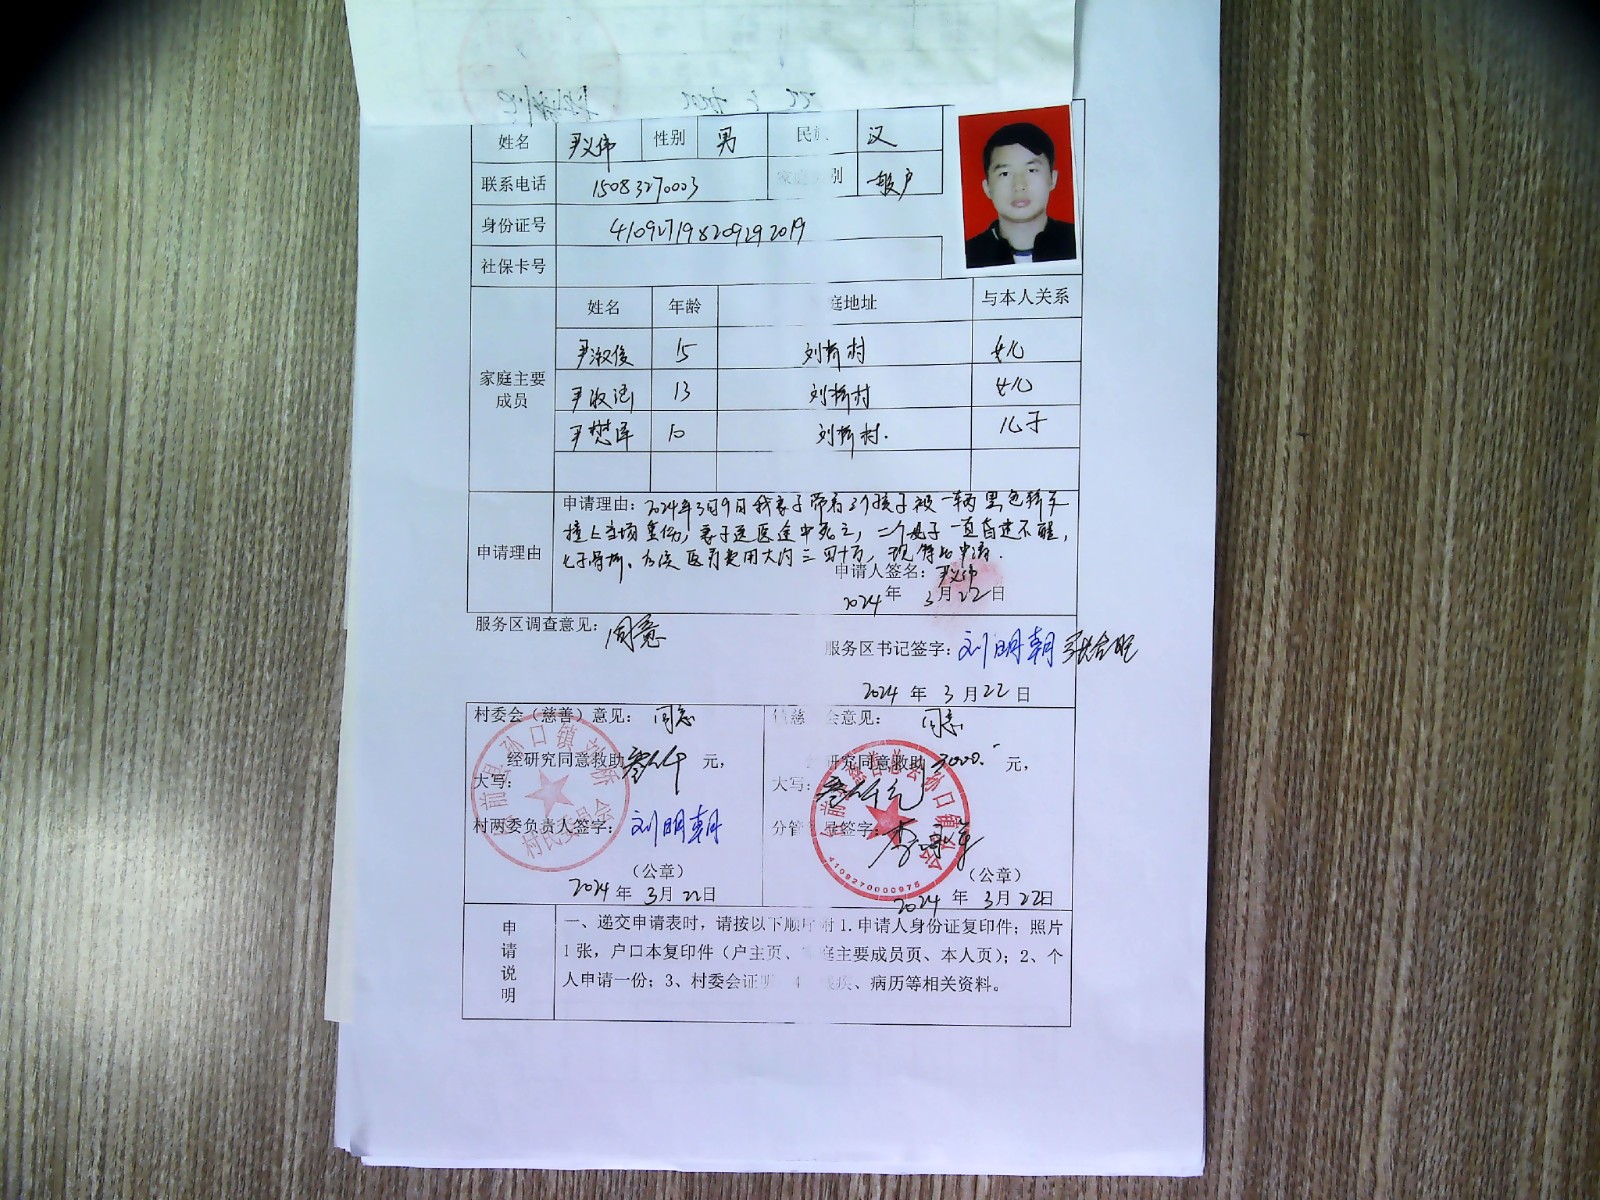 姓名 尹义伟 性别 男 民族 汉
联系电话 15083270003 家庭 别 一般户
身份证号 410927198209292019
社保卡号
家庭主要成员 姓名 年龄 庭地址 与本人关系
尹淑俊 15 刘桥村 女儿
尹淑涵 13 刘桥村 女儿
尹懋泽 10 刘桥村. 儿子
申请理由
申请理由：2024年3月9日我妻子带着3个孩子被一辆黑色轿车
撞上当场重伤，妻子送医途中死亡，二个女子一直昏迷不醒，
七子骨折、 医疗费用大约三四十万，现特此申请.
申请人签名：尹义伟
2024年 3月22日
服务区调查意见：同意
服务区书记签字：刘明朝 张合
2024 年 3 月 22 日
村委会（慈善）意见： 同意
经研究同意救助叁仟 元，
大写：
村两委负责人签字： 刘明朝
（公章）
2024 年 3月 22日
镇慈 会意见： 同意
研究同意救助 3000. 元，
大写：叁仟元
分管 员签字：李
（公章）
2024 年 3月 22日
前县孙口镇刘桥
村民委员会
前 慈善总会孙口镇分会
4109270000975
申请说明
一、递交申请表时，请按以下顺序附 1.申请人身份证复印件；照片
1 张，户口本复印件（户主页、 庭主要成员页、本人页）；2、个
人申请一份；3、村委会证明 4 残疾、病历等相关资料。